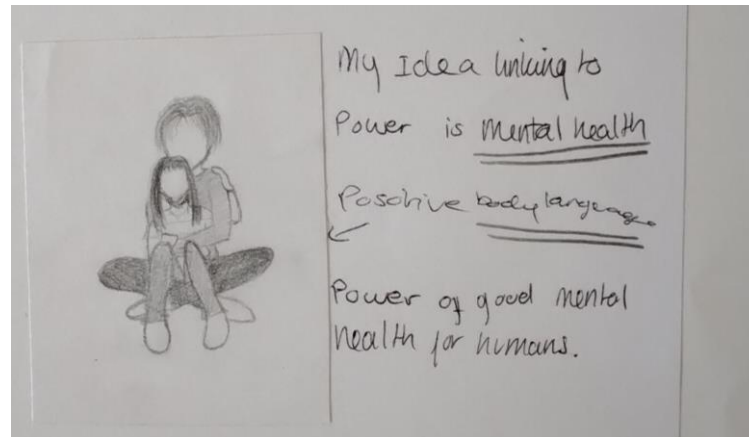 My Idea linking to
Power is mental health
Posotive body language
Power of good mental
health for humans.